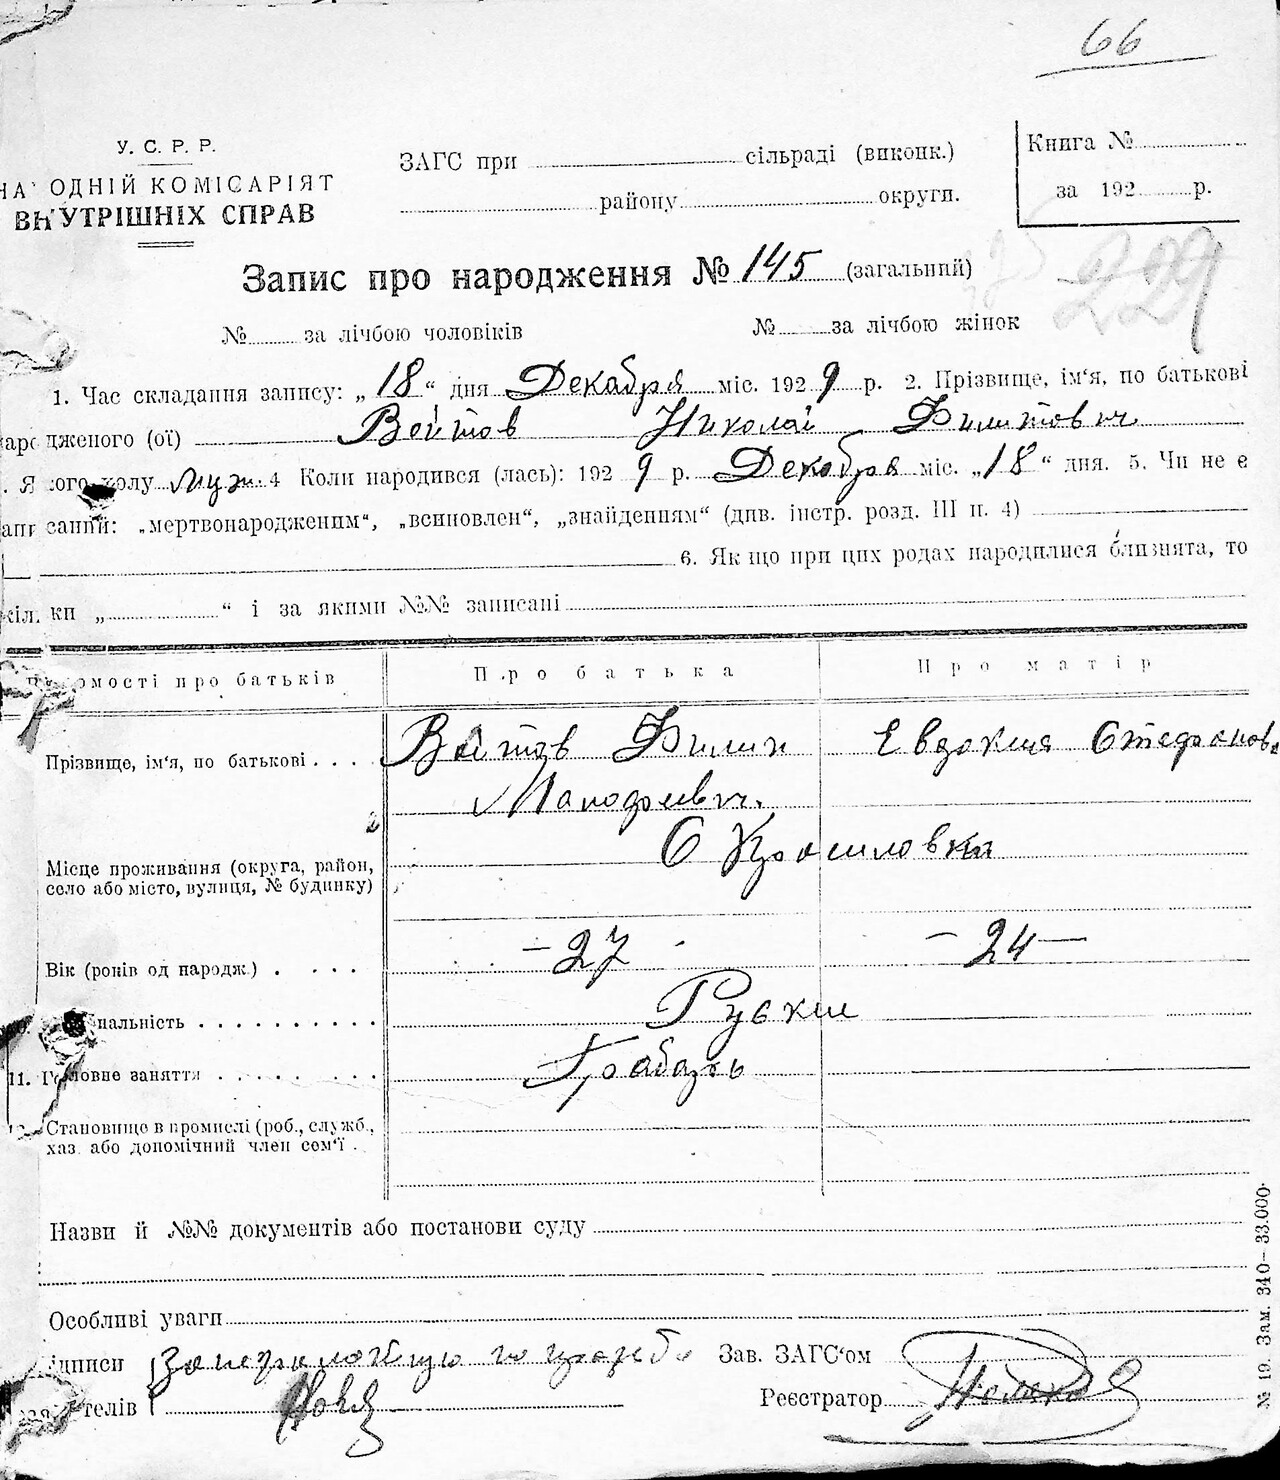 66
У. С. Р. Р.
НАРОДНІЙ КОМІСАРІЯТ
ВНУТРІШНІХ СПРАВ
ЗАГС при сільраді (виконк.)
району округи.
Книга №
за 192 р.
Запис про народження № 145 (загальний)
229
№ за лічбою чоловіків № за лічбою жінок
1. Час складання запису: „18“ дня Декабря міс. 1929 р. 2. Прізвище, ім'я, по батькові
народженого (ої) Войтов Николай Филипович
Якого полу муж. 4 Коли народився (лась): 1929 р. Декабря міс. „18“ дня. 5. Чи не є
записаний: „мертвонародженим“, „всиновлен“, „знайденням“ (див. інстр. розд. III п. 4)
6. Якщо при цих родах народилися близнята, то
скільки „ “ і за якими №№ записані
Відомості про батьків Про батька Про матір
Прізвище, ім'я, по батькові . . . . Войтов Филип Евдокия Стефанова
Місце проживання (округа, район, С Красиловка
село або місто, вулиця, № будинку)
Вік (років од народж.) . . . . . –27 –24–
нальність . . . . . . . . . . Руские
11. Головне заняття . . . . . . . . .
Становище в промислі (роб., служб.,
хаз. або допомічний член сем'ї .
Назви й №№ документів або постанови суду
Особливі уваги
підписи Зав. ЗАГС'ом
телів Реєстратор
№ 19. Зам. 340–33.000.